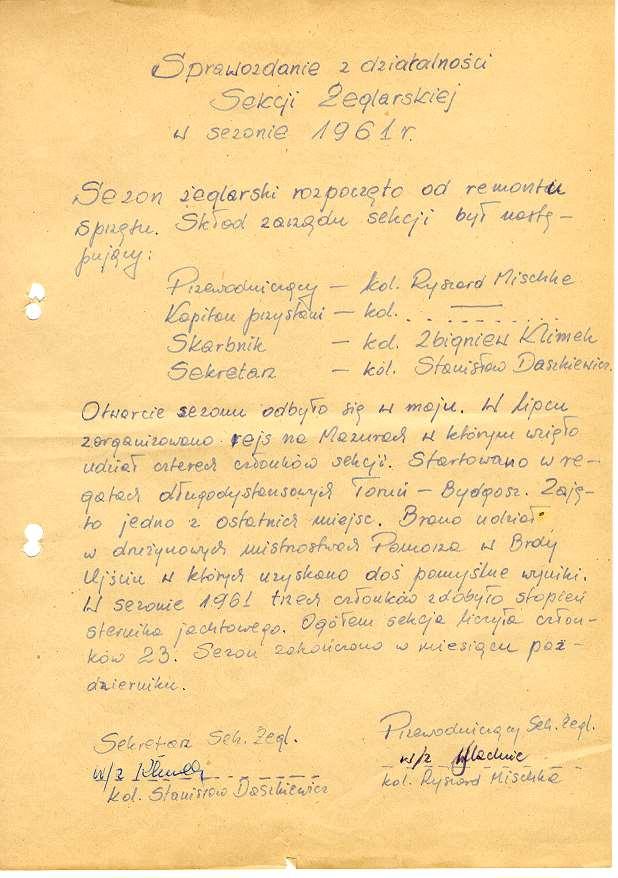 Sprawozdanie z działalności
Sekcji Żeglarskiej
w sezonie 1961 r.
Sezon żeglarski rozpoczęto od remontu
sprzętu. Skład zarządu sekcji był nastę-
pujący:
Przewodniczący — kol. Ryszard Mischke
Kapitan przystani — kol. ———
Skarbnik — kol. Zbigniew Klimek
Sekretarz — kol. Stanisław Daszkiewicz.
Otwarcie sezonu odbyło się w maju. W lipcu
zorganizowano rejs na Mazurach w którym wzięło
udział czterech członków sekcji. Startowano w re-
gatach długodystansowych Toruń – Bydgosz. Zaję-
to jedno z ostatnich miejsc. Brano udział
w drużynowych mistrostwach Pomorza w Brdy
Ujściu w których uzyskano doś pomyślne wyniki.
W sezonie 1961 trzech członków zdobyło stopień
sternika jachtowego. Ogółem sekcja liczyła człon-
ków 23. Sezon zakończono w miesiącu paź-
dzierniku.
Sekretarz Sek. Żegl.
w/z
kol. Stanisław Daszkiewicz
Przewodniczący Sek. Żegl.
w/z
kol. Ryszard Mischke